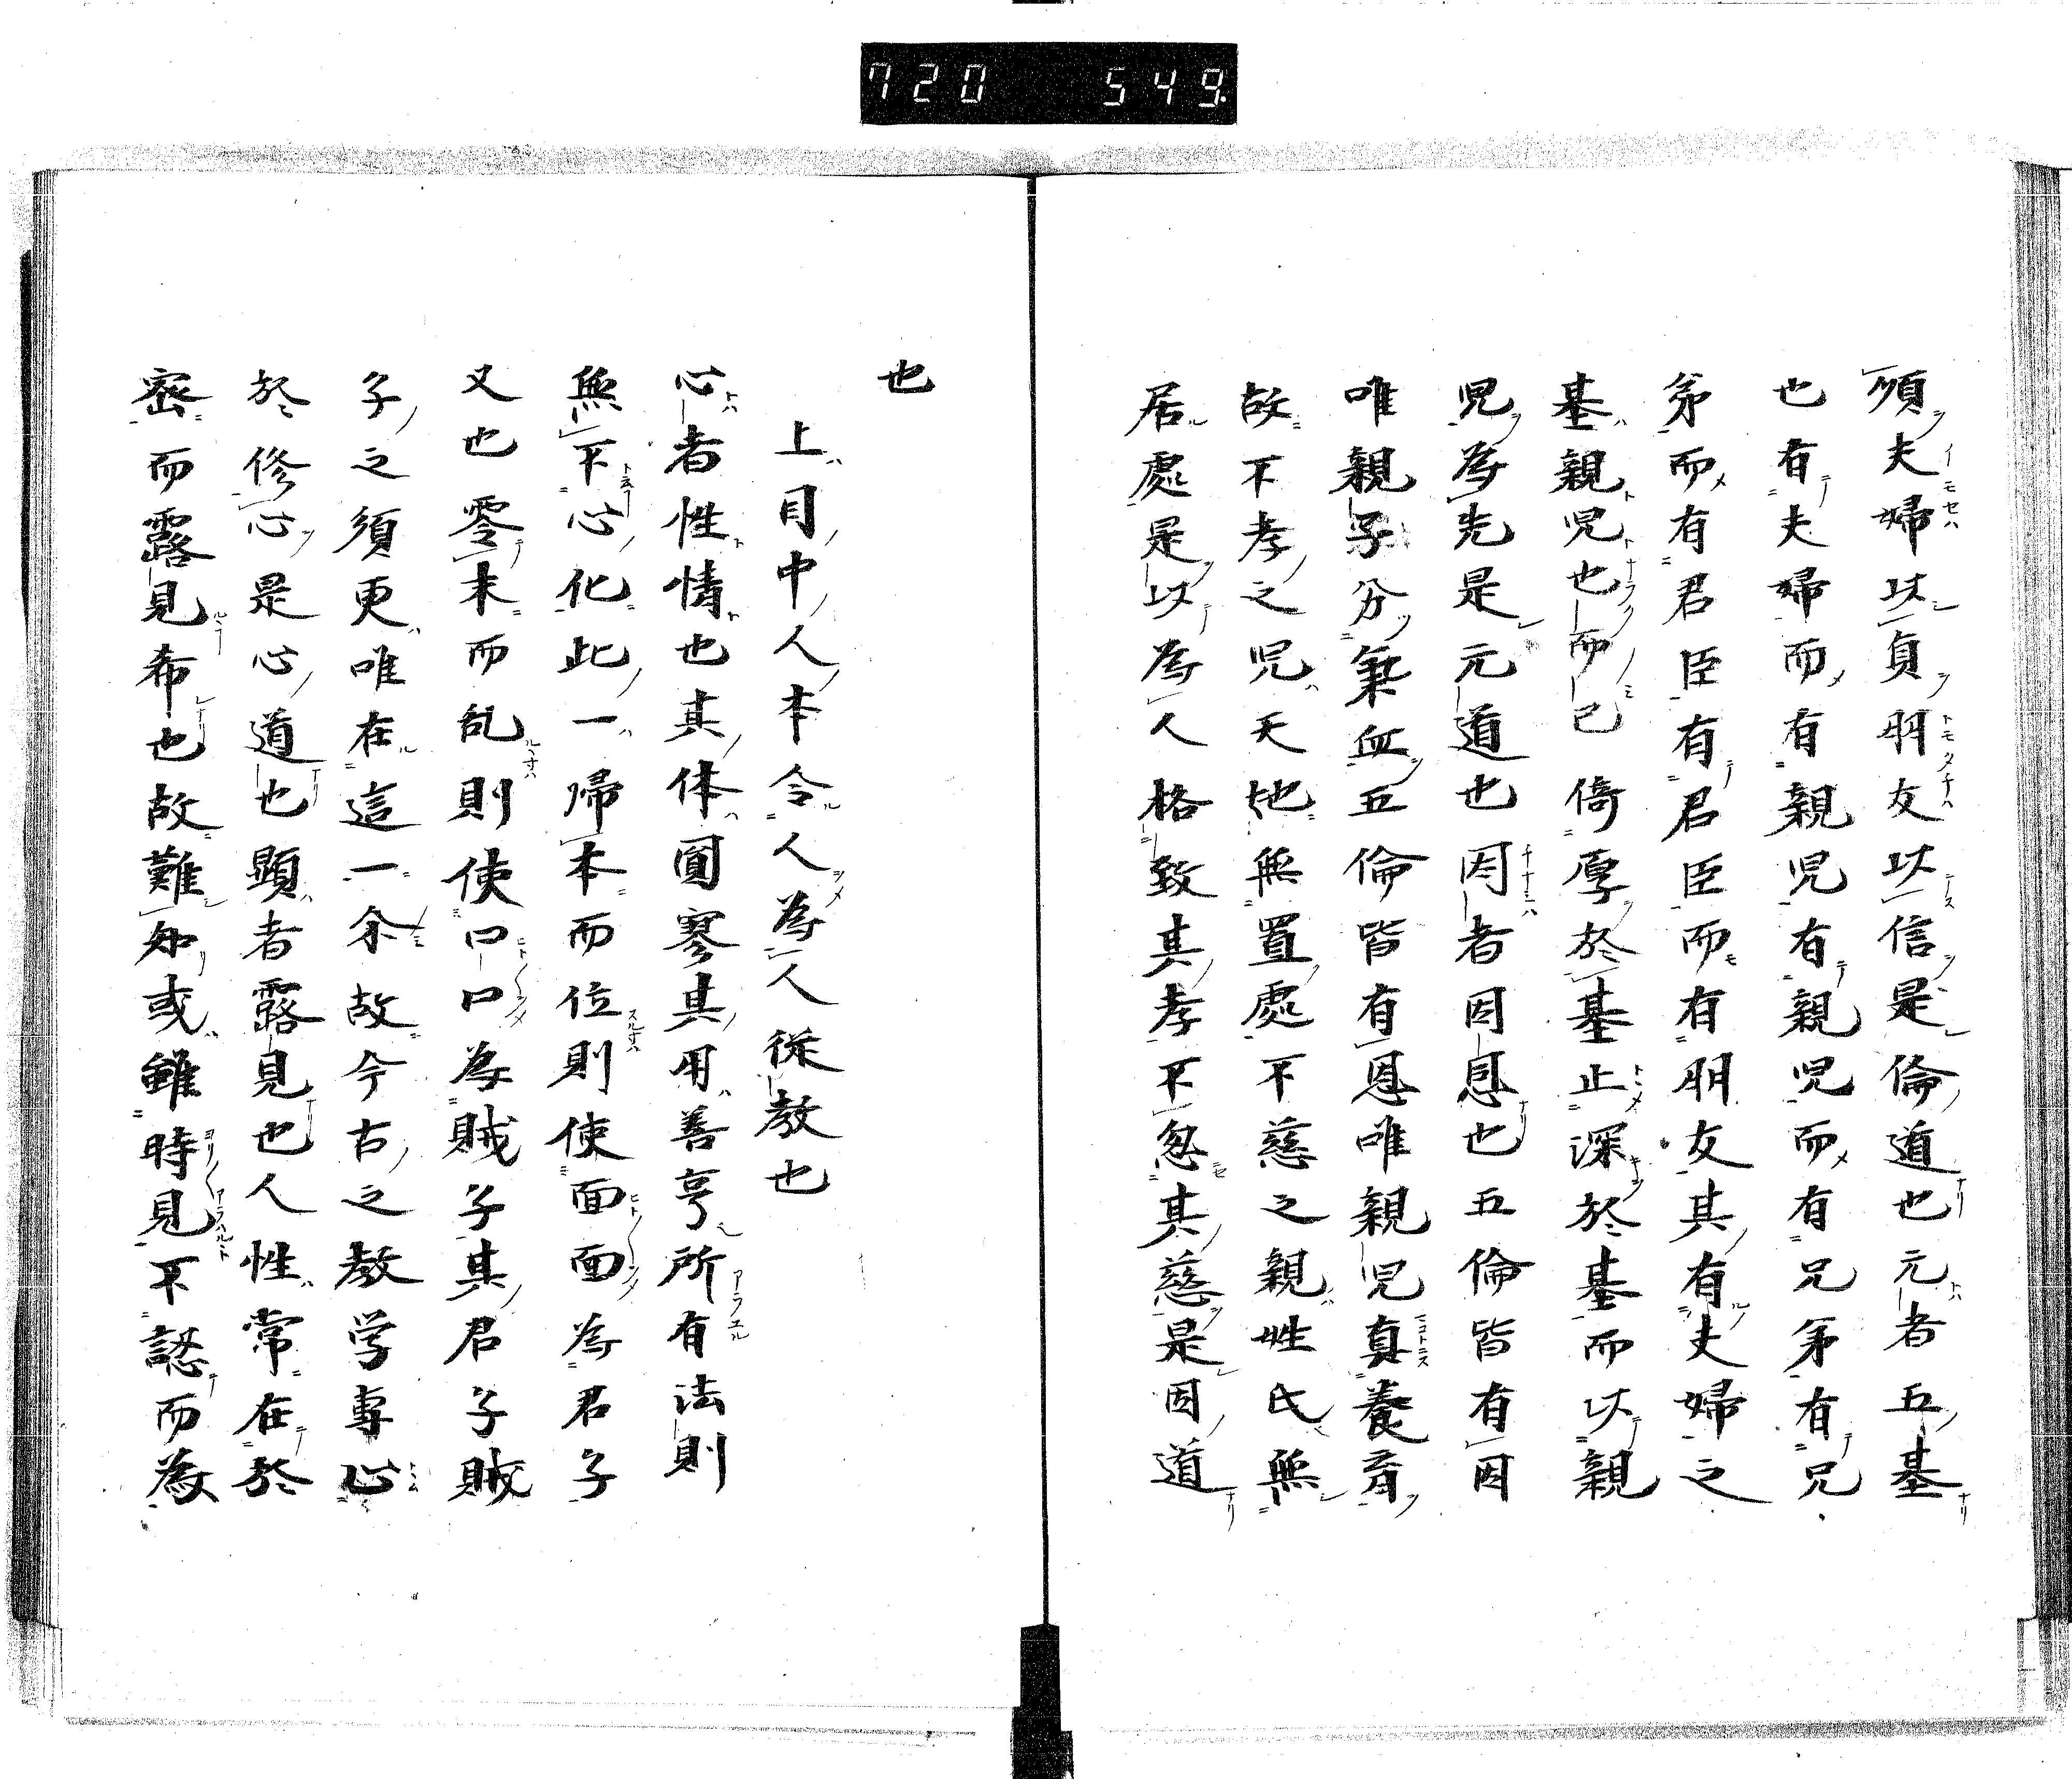 720 549
順夫婦以貞朋友以信是倫道也元者五基
也有夫婦而有親児有親児而有兄弟有兄
弟而有君臣有君臣而有朋友其有夫婦之
基親児也而已倚厚於基止深於基而以親
児為先是元道也因者因恩也五倫皆有因
唯親子分氣血五倫皆有恩唯親児真養育
故不孝之児天地無置處不慈之親姓氏無
居處是以為人格致其孝不怱其慈是因道
也
上目中人本令人為人従教也
心者性情也其体圓寥其用善亨所有法則
無不心化此一帰本而位則使面面為君子
又也零末而乱則使口口為賊子其君子賊
子之須更唯在這一余故今古之教学專心
於修心是心道也顕者露見也人性常在於
密而露見希也故難知或雖時見不認而為